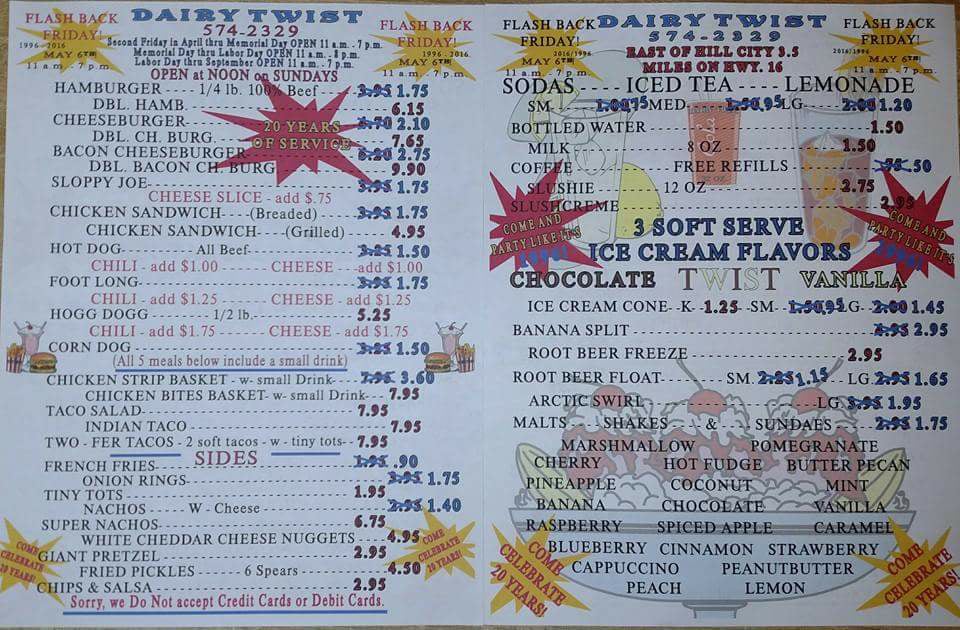 FLASH BACK
FRIDAY!
1996 - 2016
MAY 6TH
11 a.m. - 7 p.m.
DAIRY TWIST
574-2329
Second Friday in April thru Memorial Day OPEN 11 a.m. - 7 p.m.
Memorial Day thru Labor Day OPEN 11 a.m. - 8 p.m.
Labor Day thru September OPEN 11 a.m. - 7 p.m.
OPEN at NOON on SUNDAYS
FLASH BACK
FRIDAY!
1996 - 2016
MAY 6TH
11 a.m. - 7 p.m.
20 YEARS
OF SERVICE
HAMBURGER ----- 1/4 lb. 100% Beef - 3.95 1.75
DBL. HAMB. 6.15
CHEESEBURGER 3.70 2.10
DBL. CH. BURG. 7.65
BACON CHEESEBURGER 6.20 2.75
DBL. BACON CH. BURG 9.90
SLOPPY JOE 3.95 1.75
CHEESE SLICE - add $.75
CHICKEN SANDWICH---- (Breaded) 3.95 1.75
CHICKEN SANDWICH----(Grilled) 4.95
HOT DOG All Beef 3.25 1.50
CHILI - add $1.00 ------ CHEESE --- add $1.00
FOOT LONG 3.95 1.75
CHILI - add $1.25 ----- CHEESE - add $1.25
HOGG DOGG ------- 1/2 lb. 5.25
CHILI - add $1.75 ------ CHEESE - add $1.75
CORN DOG 3.25 1.50
(All 5 meals below include a small drink)
CHICKEN STRIP BASKET - w- small Drink--- 7.95 3.60
CHICKEN BITES BASKET- w- small Drink--- 7.95
TACO SALAD 7.95
INDIAN TACO 7.95
TWO - FER TACOS - 2 soft tacos - w - tiny tots-- 7.95
SIDES
FRENCH FRIES 1.95 .90
ONION RINGS 3.95 1.75
TINY TOTS 1.95
NACHOS ------- W - Cheese 2.95 1.40
SUPER NACHOS 6.75
WHITE CHEDDAR CHEESE NUGGETS 4.95
GIANT PRETZEL 2.95
FRIED PICKLES ------ 6 Spears 4.50
CHIPS & SALSA 2.95
Sorry, we Do Not accept Credit Cards or Debit Cards.
COME
CELEBRATE
20 YEARS!
COME
CELEBRATE
20 YEARS!
FLASH BACK
FRIDAY!
2016/1996
MAY 6TH
11 a.m. - 7 p.m.
DAIRY TWIST
574-2329
EAST OF HILL CITY 3.5
MILES ON HWY. 16
FLASH BACK
FRIDAY!
2016/1996
MAY 6TH
11 a.m. - 7 p.m.
SODAS ----- ICED TEA ----- LEMONADE
SM. 1.00 .75 MED 1.50 .95 LG 2.00 1.20
BOTTLED WATER 1.50
MILK 8 OZ 1.50
COFFEE FREE REFILLS .75 .50
SLUSHIE 12 OZ 2.75
SLUSHCREME 2.95
Cola
COME AND
PARTY LIKE IT'S
1996!
COME AND
PARTY LIKE IT'S
1996!
3 SOFT SERVE
ICE CREAM FLAVORS
CHOCOLATE TWIST VANILLA
ICE CREAM CONE- K- 1.25 -SM 1.50 .95 LG 2.00 1.45
BANANA SPLIT 4.95 2.95
ROOT BEER FREEZE 2.95
ROOT BEER FLOAT SM. 2.25 1.15 LG. 2.95 1.65
ARCTIC SWIRL LG. 3.95 1.95
MALTS SHAKES & SUNDAES 2.95 1.75
MARSHMALLOW POMEGRANATE
CHERRY HOT FUDGE BUTTER PECAN
PINEAPPLE COCONUT MINT
BANANA CHOCOLATE VANILLA
RASPBERRY SPICED APPLE CARAMEL
BLUEBERRY CINNAMON STRAWBERRY
CAPPUCCINO PEANUTBUTTER
PEACH LEMON
COME
CELEBRATE
20 YEARS!
COME
CELEBRATE
20 YEARS!